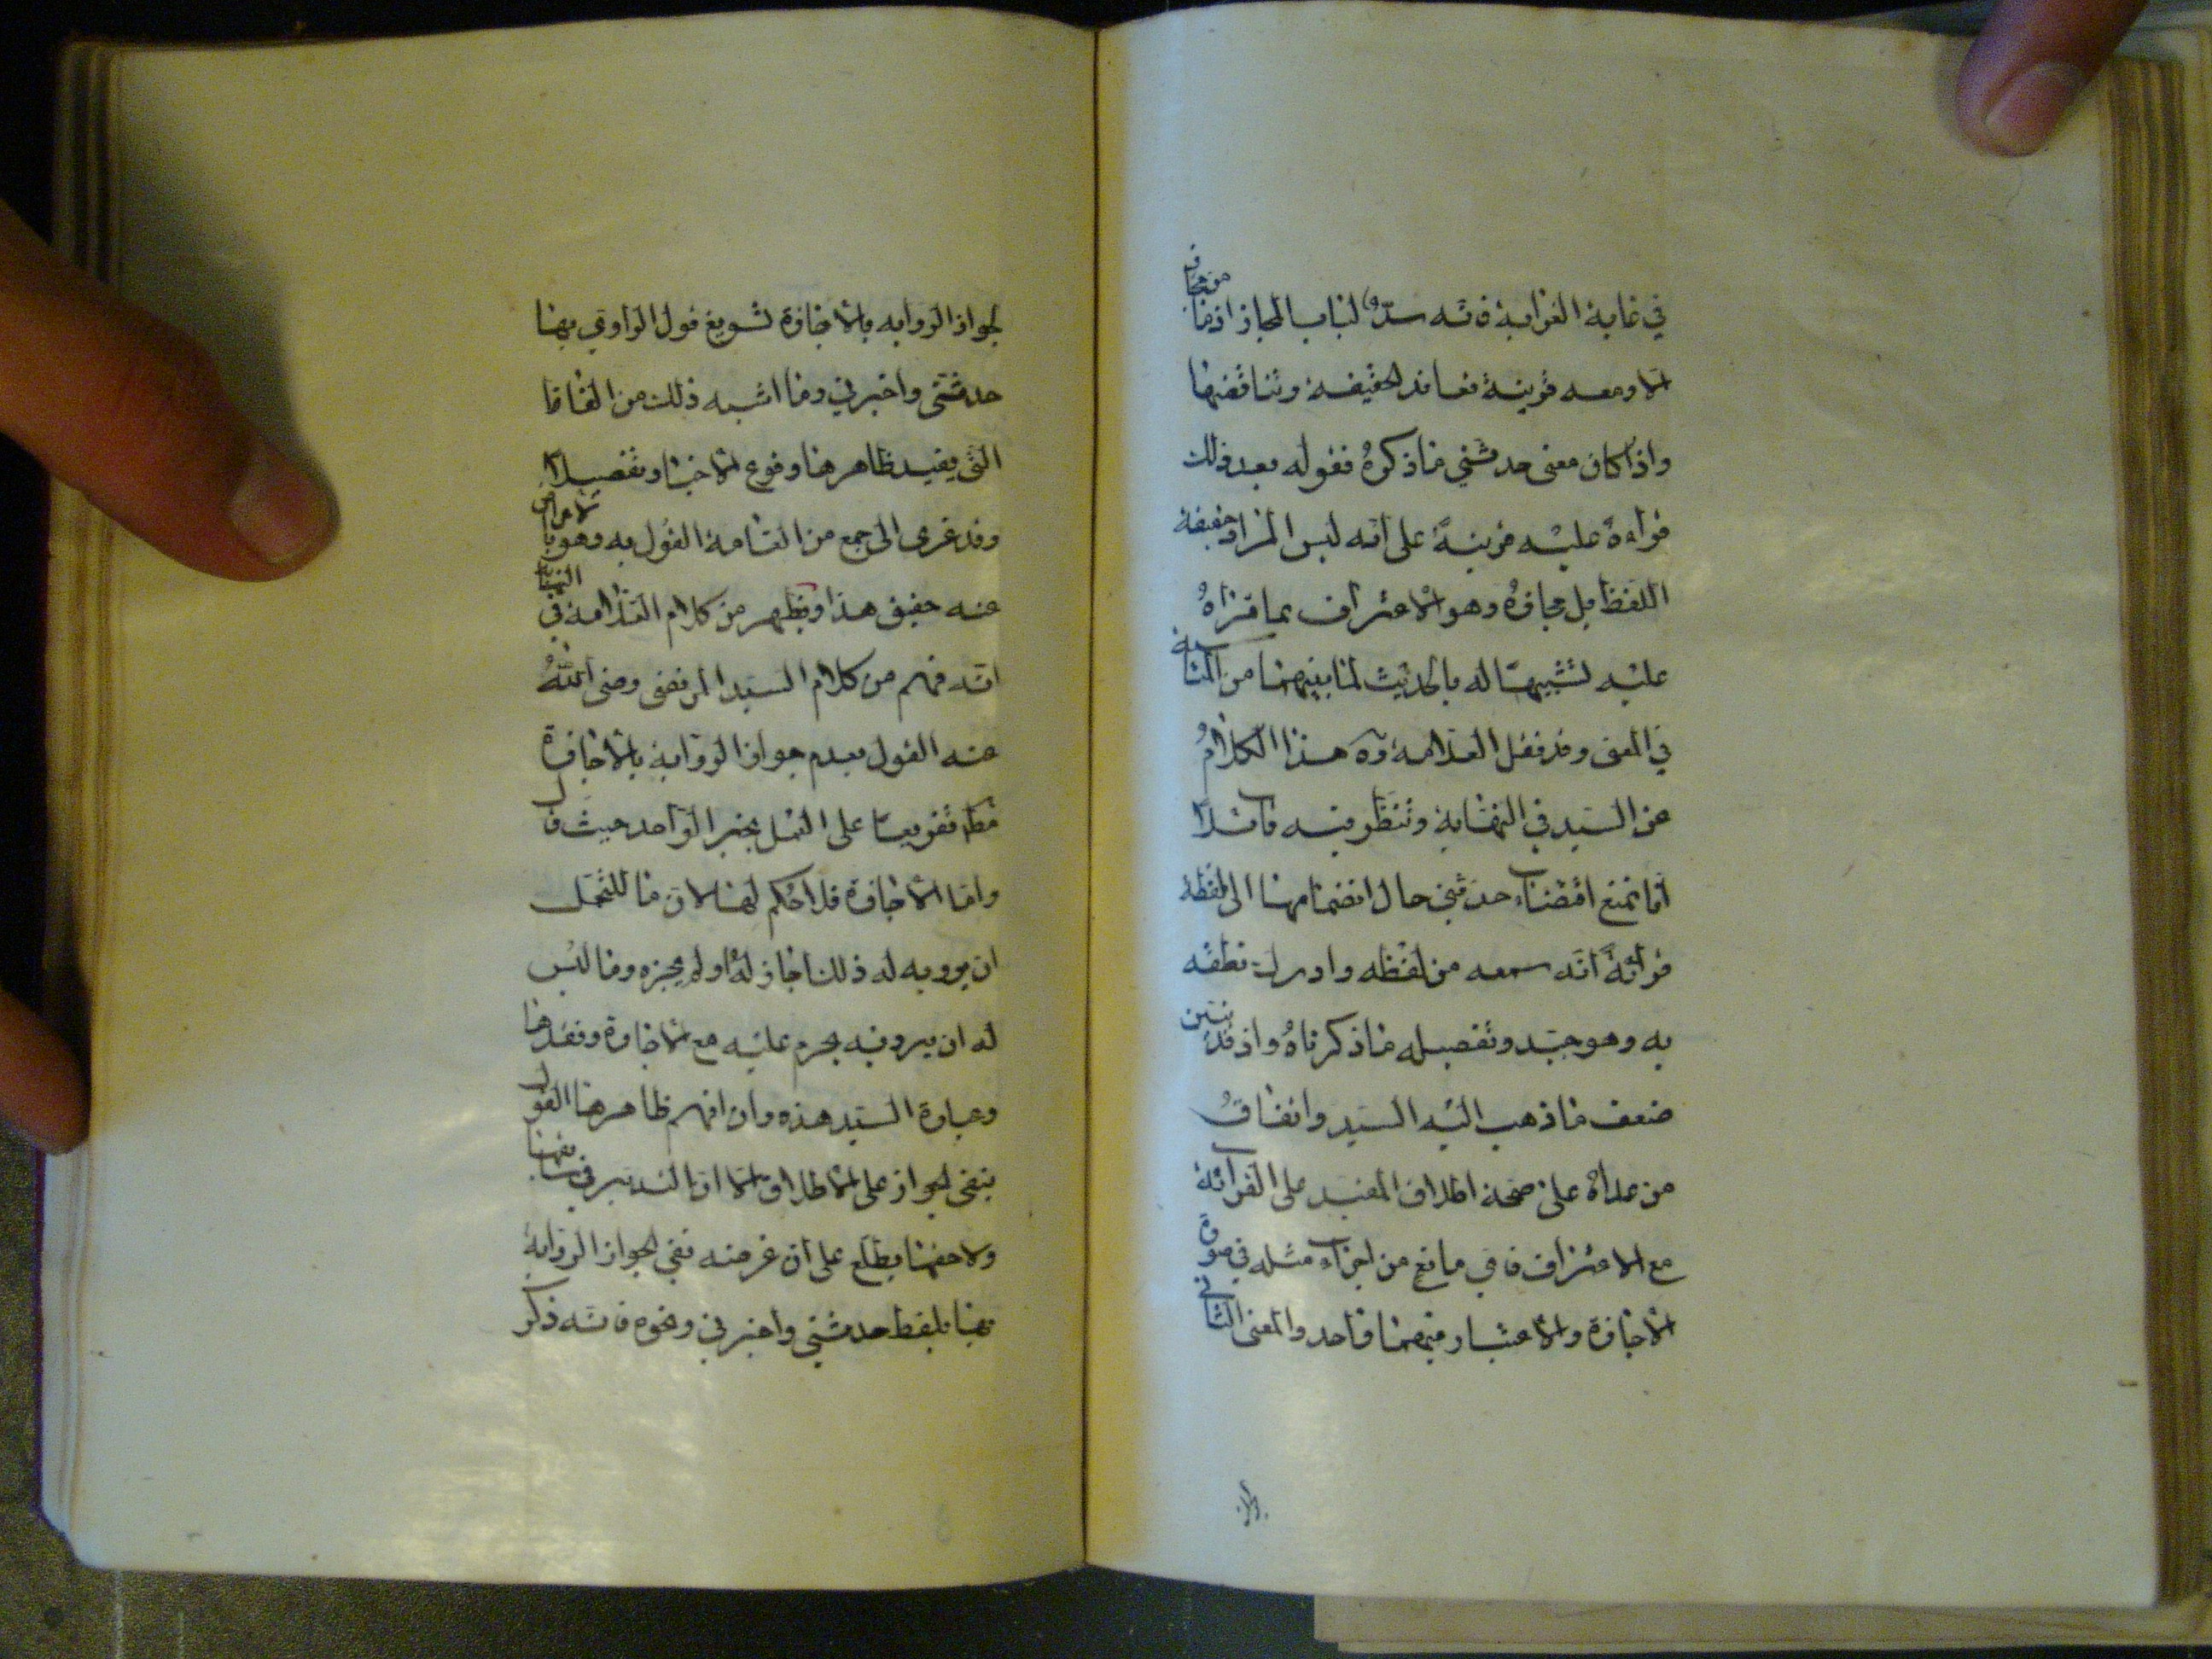 في غاية الغرابة فانه سدّ لباب المجاز اذ ما من مجاز
الا ومعه قرينة تعاند الحقيقة وتناقضها
واذا كان معنى حدثني ما ذكره فقوله بعد ذلك
قراءة عليه قرينة على انه ليس المراد حقيقة
اللفظ بل مجازه وهو الاعتراف بما قراه
عليه تشبيها له بالحديث لما بينهما من المناسبة
في المعنى وقد نقل العلامة ره هذا الكلام
عن السيد في النهاية وتنظر فيه قائلا
انا نمنع اقتضاء حدثني حال انضمامها الى لفظة
قرائة انه سمعه من لفظه وادراك نطقه
به وهو جيد وتفصيله ما ذكرناه واذ قد تبين
ضعف ما ذهب اليه السيد واتفاق
من عداه على صحة اطلاق المقيد على القرائة
مع الاعتراف فاي مانع من اجزاء مثله في صورة
الاجازة والاعتبار فيهما واحد والمعنى الثاني
الا
لجواز الرواية بالاجازة تسويغ قول الراوي بها
حدثني واخبرني وما اشبه ذلك من الفاظ
التي يفيد ظاهرها وقوع الاخبار تفصيلا
وقد عزى الى جمع من العامة القول به وهو بالاعراض
عنه حقيق هذا ويظهر من كلام العلامة في النهاية
انه فهم من كلام السيد المرتضى رضى الله
عنه القول بعدم جواز الرواية بالاجازة
تفريعا على العمل بخبر الواحد حيث قال
واما الاجازة فلا حكم لها لان ما للتحمل
ان يرويه له ذلك اجاز له او لم يجزه وما ليس
له ان يرويه يحرم عليه مع الاجازة وفقدها
وعبارة السيد هذه وان افهم ظاهرها القول
بنفي الجواز على الاطلاق الا ان التدبر في سابقها
ولاحقها يطلع على ان غرضه نفي الجواز الرواية
بها بلفظ حدثني واخبرني ونحوه فانه ذكر